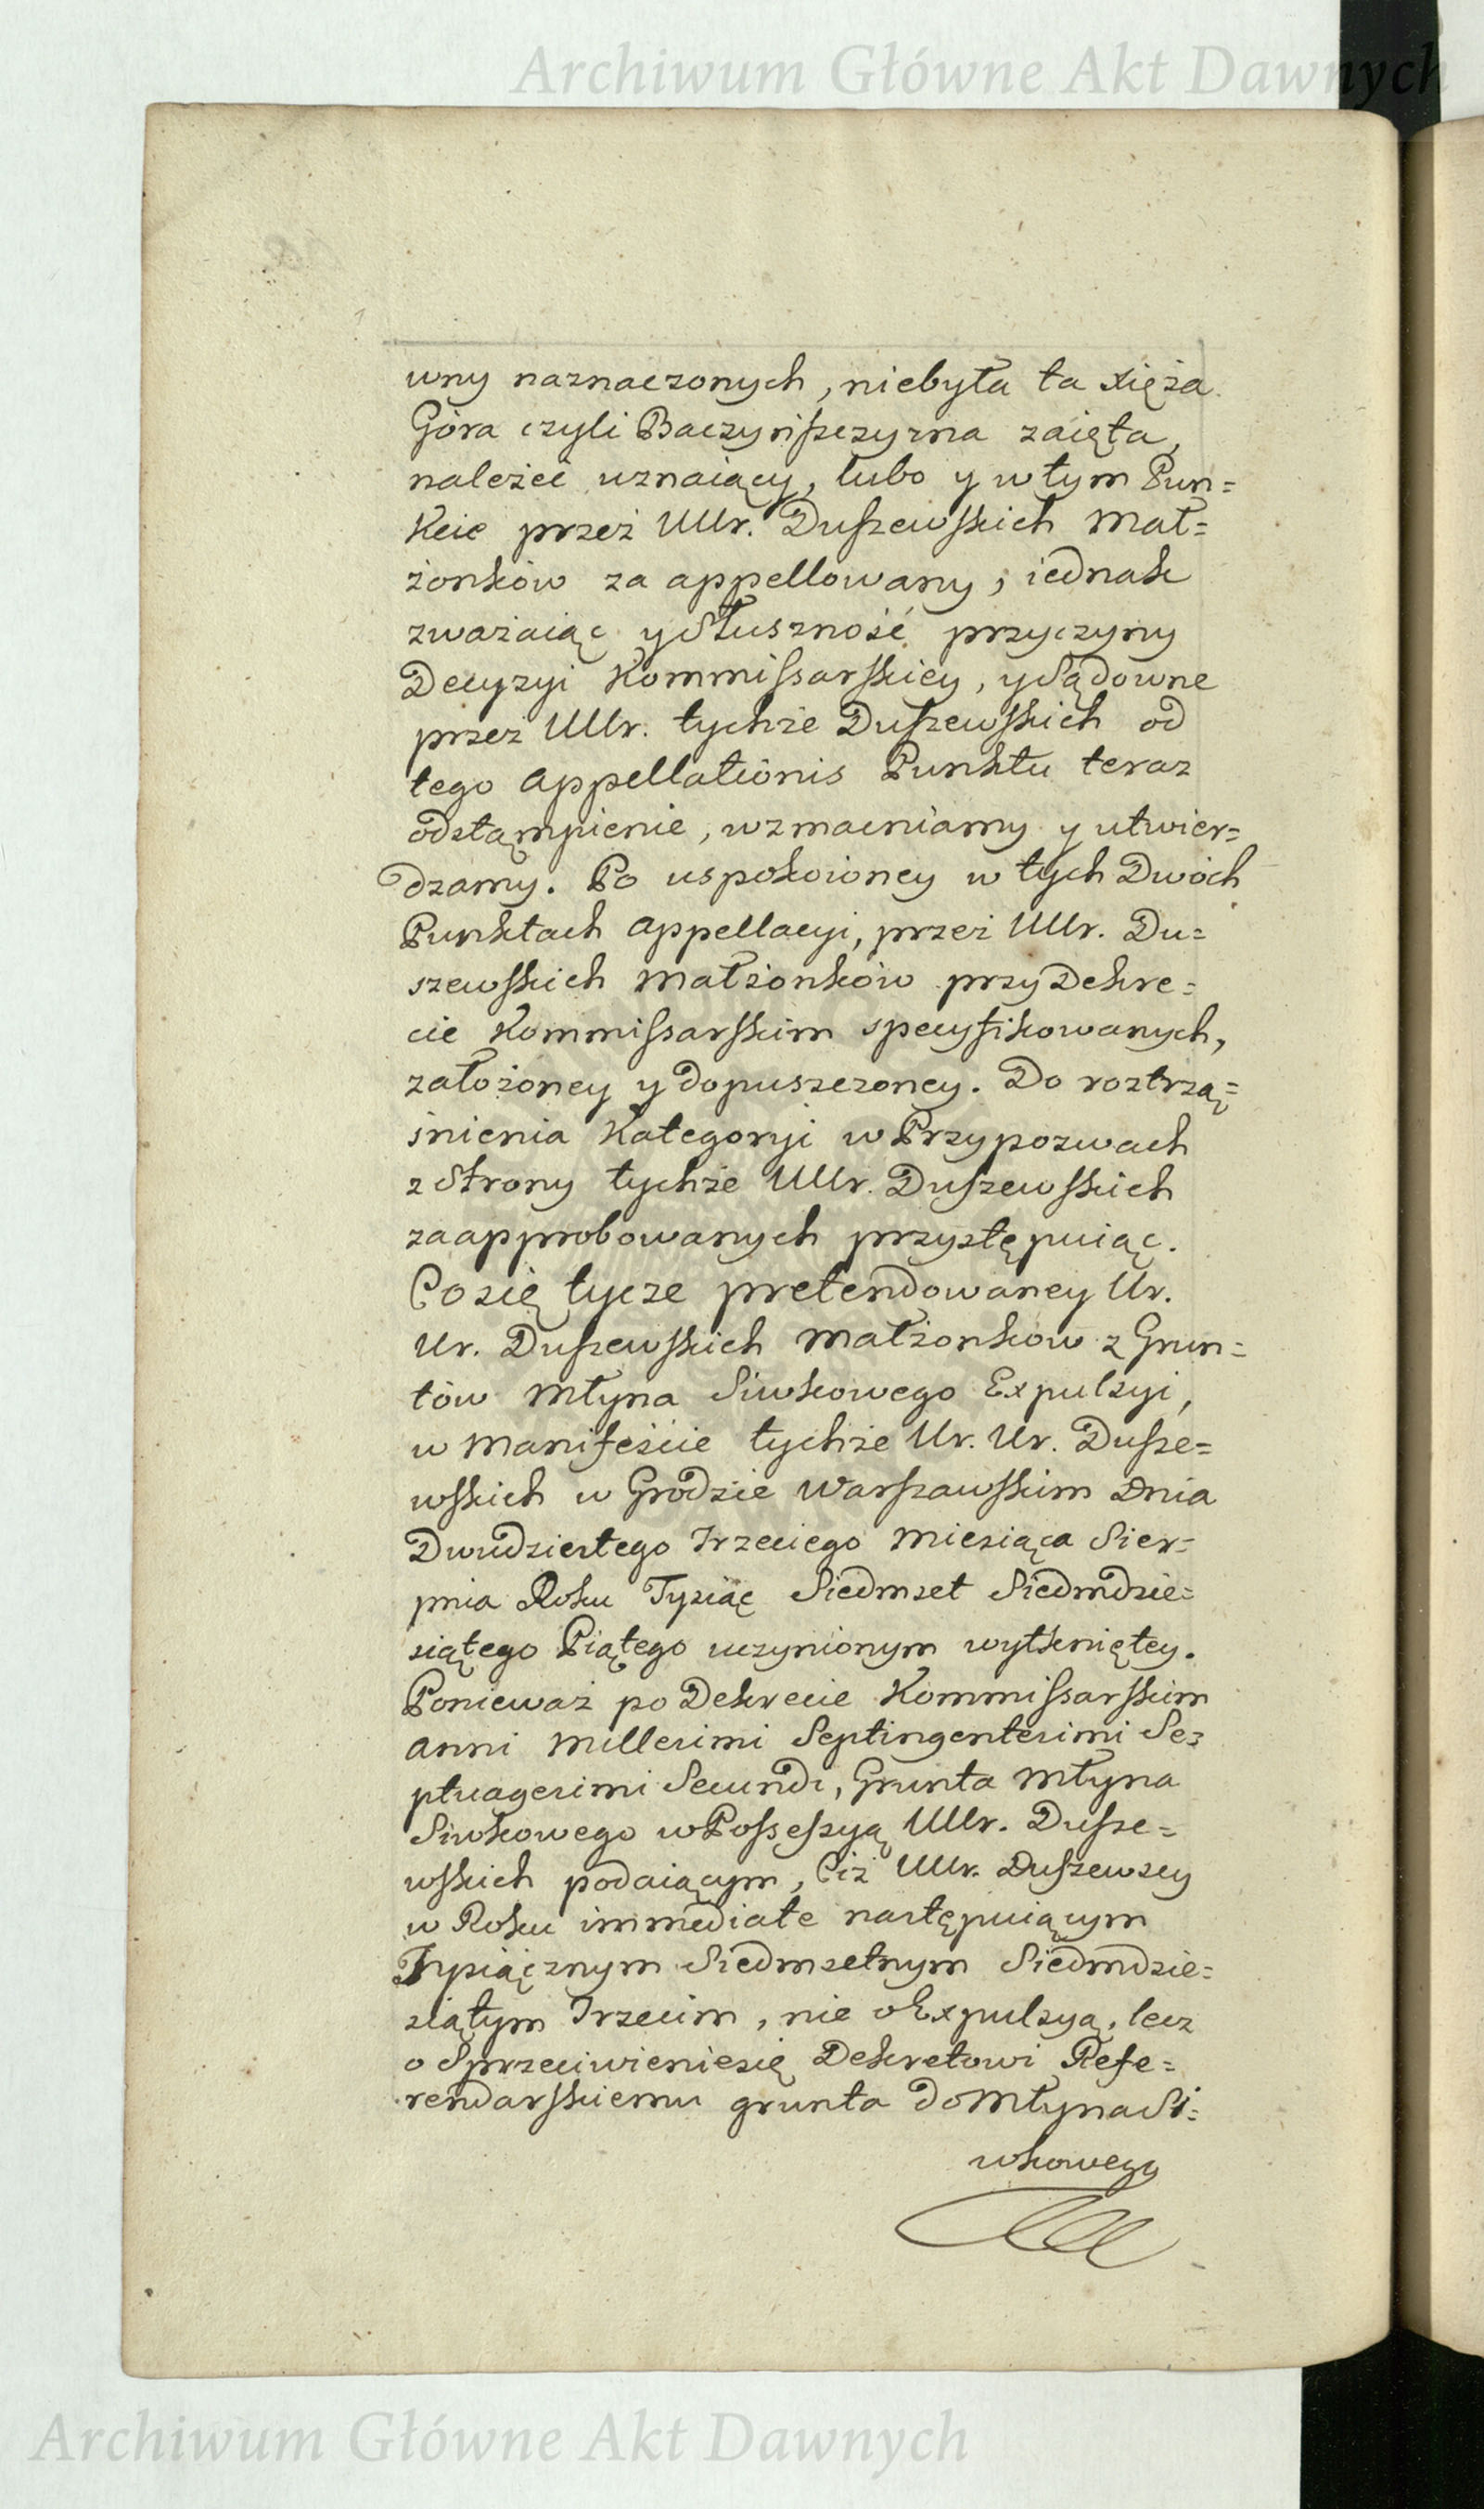 Archiwum Główne Akt Dawnych
wny naznaczonych, niebyła ta Xięża
Góra czyli Baczyńszczyzna zaięta,
należeć uznaiący, lubo y w tym Pun=
kcie przez UUr. Duszewskich Mał=
żonków za appellowany, iednak
zważaiąc y Słuszność przyczyny
Decyzyi Kommissarskiey, y Sądowne
przez UUr. tychże Duszewskich od
tego appellationis Punktu teraz
odstąmpienie, wzmacniamy y utwier=
dzamy. Po uspokoioney w tych Dwóch
Punktach appellacyi, przez UUr. Du=
szewskich Małżonków przy Dekre=
cie Kommissarskim specyfikowanych,
założoney y dopuszczoney. Do roztrzą=
śnienia Kategoryi w Przypozwach
z Strony tychże UUr. Duszewskich
zaapprobowanych przystępuiąc.
Co się tycze pretendowaney Ur.
Ur. Duszewskich Małżonkow z Grun=
tów Młyna Siwkowego Expulsyi,
w Manifeście tychże Ur. Ur. Dusze=
wskich w Grodzie Warszawskim Dnia
Dwudziestego Trzeciego Miesiąca Sier=
pnia Roku Tysiąc Siedmset Siedmdzie=
siątego Piątego uczynionym wytkniętey.
Ponieważ po Dekrecie Kommissarskim
anni Millesimi Septingentesimi Se=
ptuagesimi Secundi, Grunta Młyna
Siwkowego w Possessyą UUr. Dusze=
wskich podaiącym, Ciż UUr. Duszewscy
w Roku immediate następuiącym
Tysiącznym Siedmsetnym Siedmdzie=
siątym Trzecim, nie o Expulsyą, lecz
o Sprzeciwieniesię Dekretowi Refe=
rendarskiemu grunta do Młyna Si=
wkowego
Archiwum Główne Akt Dawnych